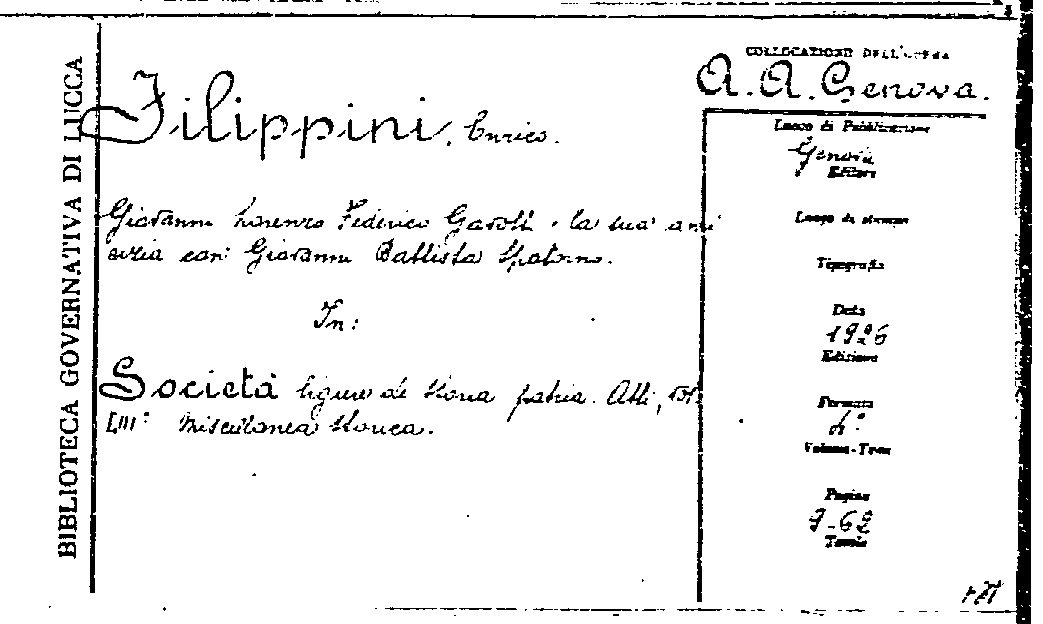 BIBLIOTECA GOVERNATIVA DI LUCCA
Filippini, Enrico.
Giovanni Lorenzo Federico Gavotti e la sua ami
cizia con Giovanni Battista Spotorno.
In:
Società ligure di storia patria. Atti, vol.
LIII: Miscellanea storica.
COLLOCAZIONE DELL'OPERA
A. A. Genova.
Luogo di Pubblicazione
Genova
Editore
Luogo di stampa
Tipografia
Data
1926
Edizione
Formato
4°
Volume-Tomo
Pagine
9-62
Tavole